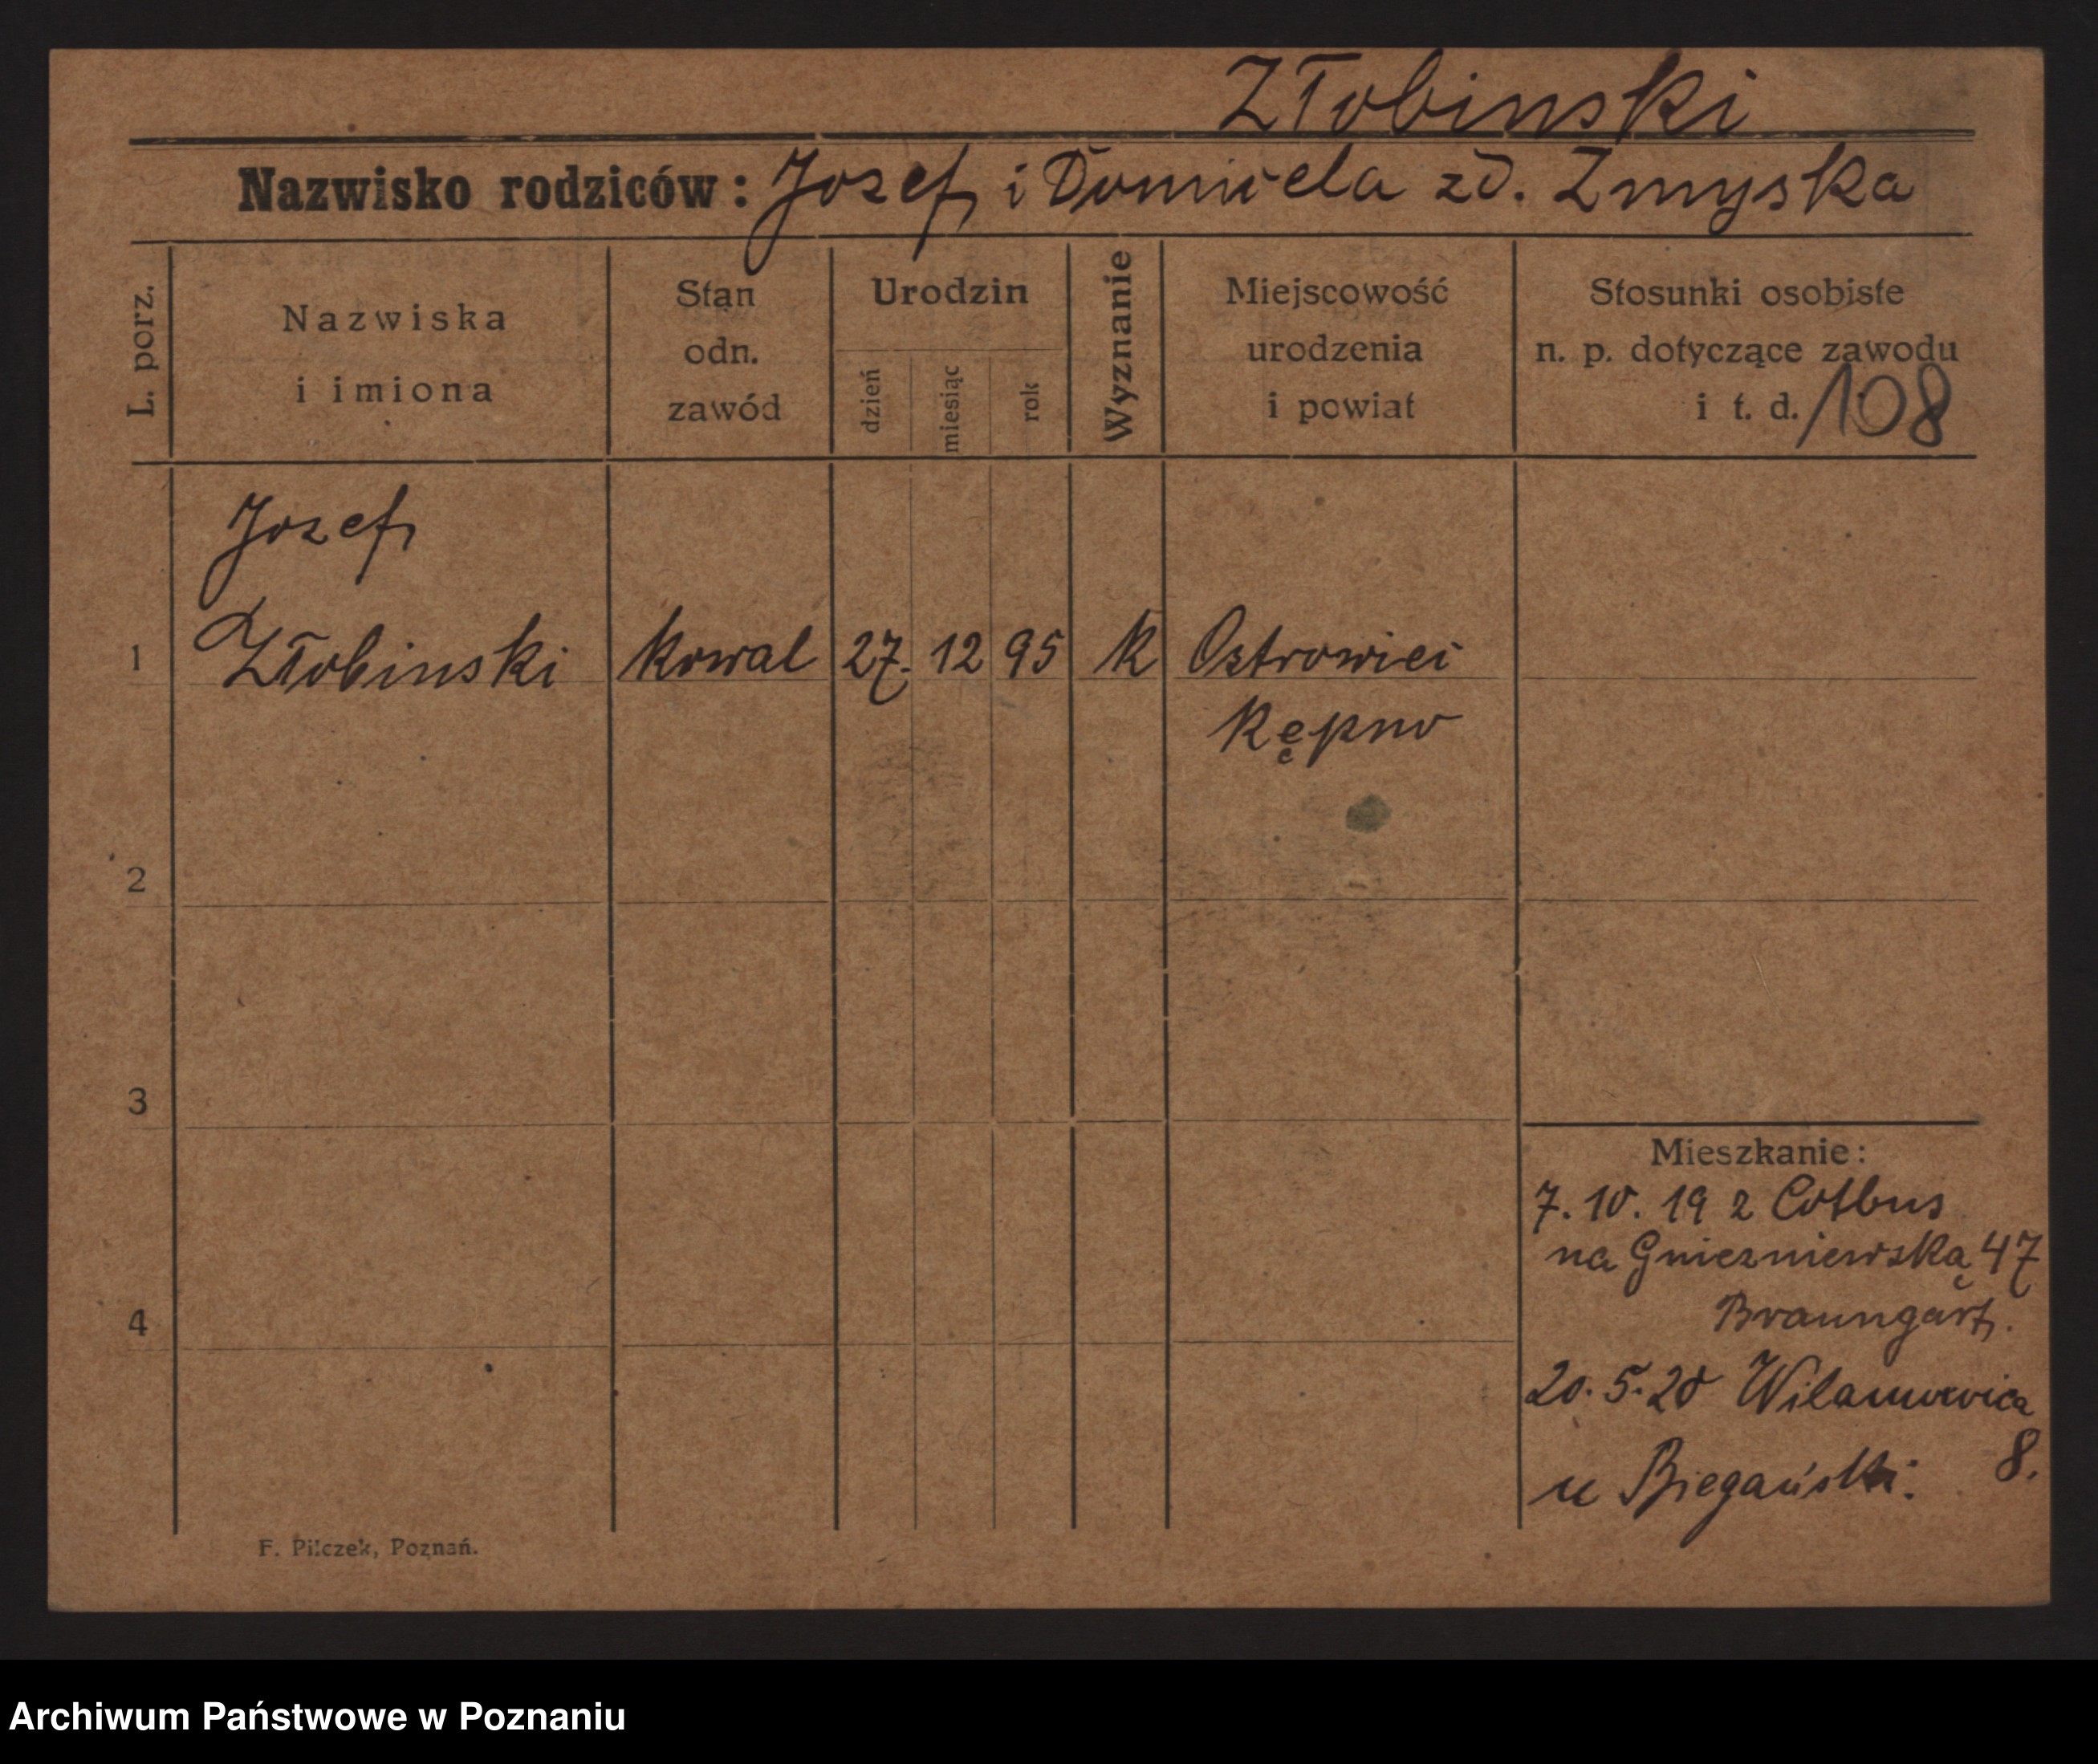 Złobinski
Nazwisko rodziców: Josef i Domicela zd. Zmyska
L. porz.
Nazwiska
i imiona
Stan
odn.
zawód
Urodzin
dzień
miesiąc
rok
Wyznanie
Miejscowość
urodzenia
i powiat
Stosunki osobiste
n. p. dotyczące zawodu
i t. d. 108
Jozef
1 Złobinski kowal 27. 12 95 k Ostrowiec
Kępno
2
3
4
Mieszkanie:
7. 10. 19 z Cotbus
na Gniezniewską 47
Braungart.
20. 5. 20
8.
u Biegański.
F. Pilczek, Poznań.
Archiwum Państwowe w Poznaniu